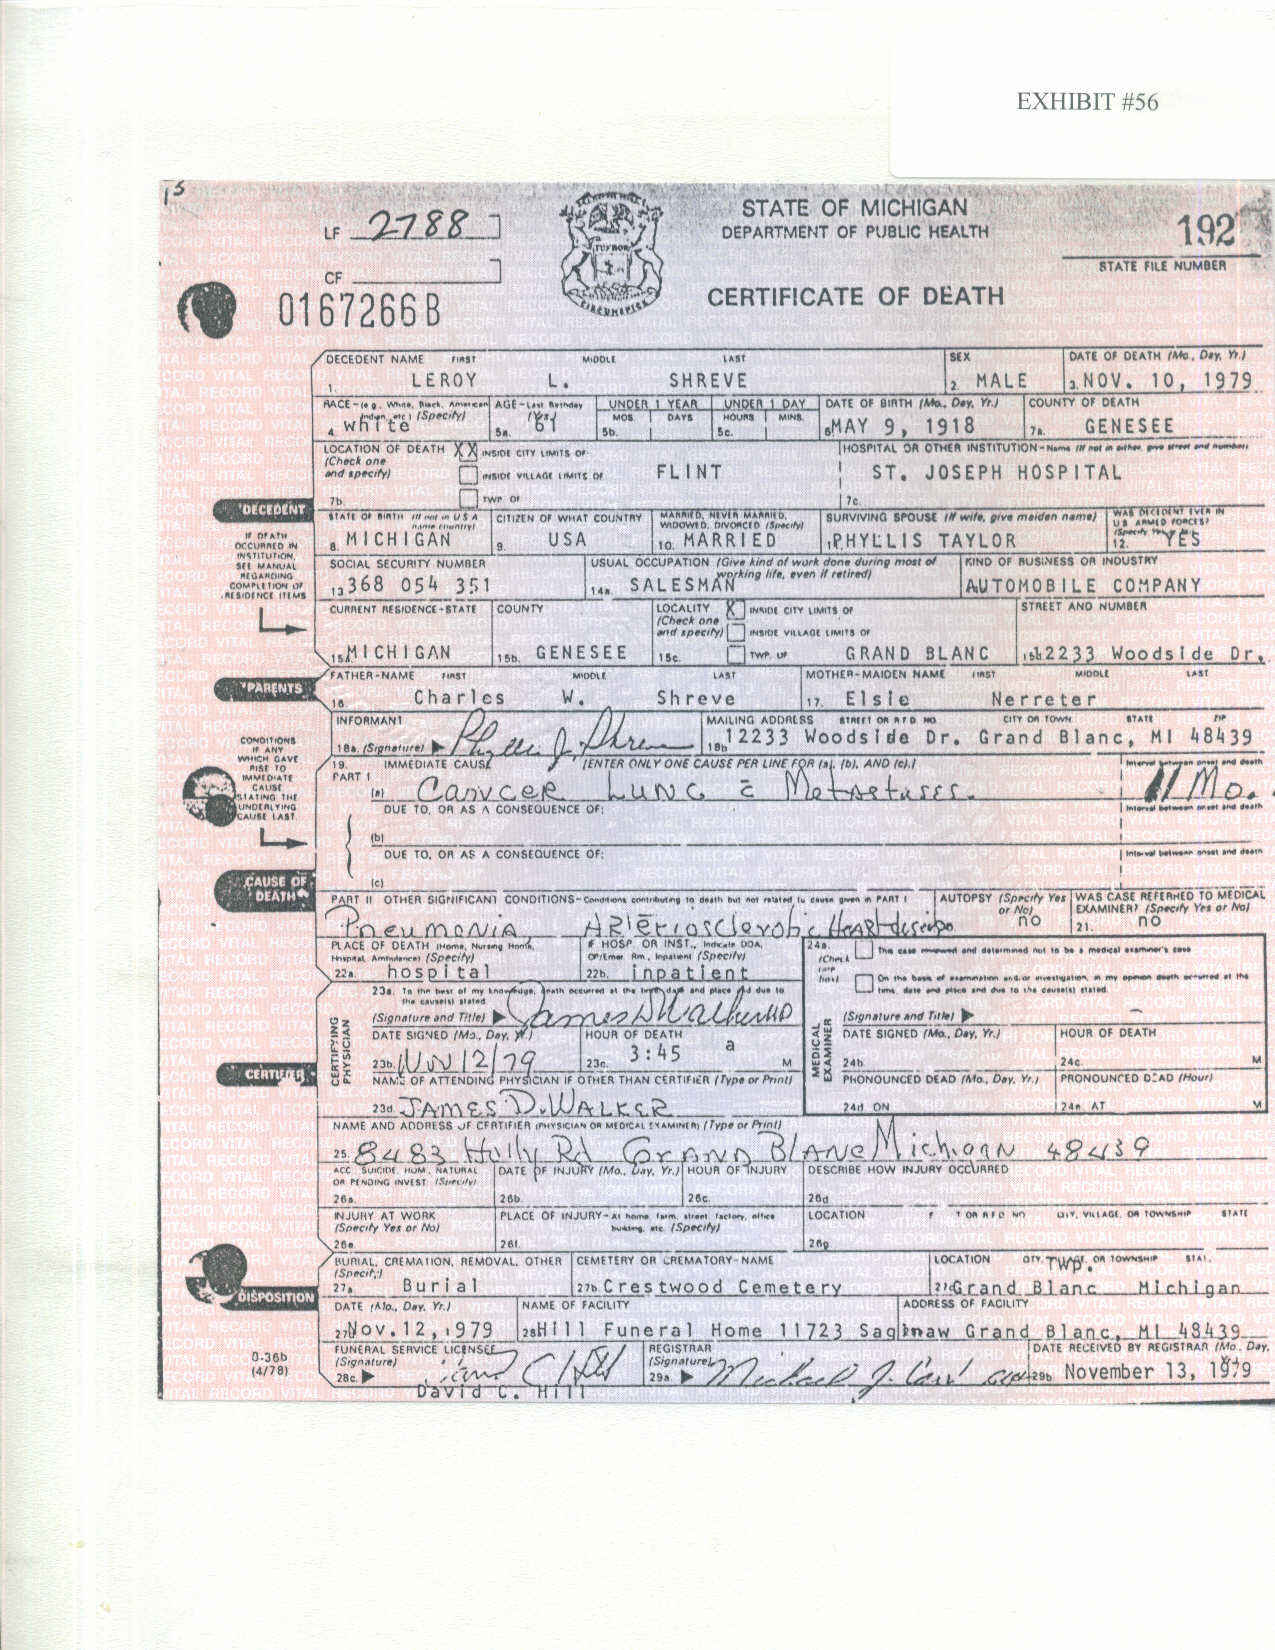 EXHIBIT #56
15
LF 2788
CF
0167266B
STATE OF MICHIGAN
DEPARTMENT OF PUBLIC HEALTH
CERTIFICATE OF DEATH
192
STATE FILE NUMBER
TUEBOR
DECEDENT NAME FIRST MIDDLE LAST SEX DATE OF DEATH (Mo., Day, Yr.)
1. LEROY L. SHREVE 2. MALE 3. NOV. 10, 1979
RACE-(e.g., White, Black, American Indian, etc.) (Specify) AGE-Last Birthday (Yrs.) UNDER 1 YEAR UNDER 1 DAY DATE OF BIRTH (Mo., Day, Yr.) COUNTY OF DEATH
MOS. DAYS HOURS MINS.
4. White 5a. 61 5b. 5c. 6 MAY 9, 1918 7a. GENESEE
LOCATION OF DEATH XX INSIDE CITY LIMITS OF HOSPITAL OR OTHER INSTITUTION-Name (If not in either, give street and number)
(Check one and specify) INSIDE VILLAGE LIMITS OF FLINT ST. JOSEPH HOSPITAL
7b. TWP OF 7c.
DECEDENT
IF DEATH OCCURRED IN INSTITUTION, SEE MANUAL REGARDING COMPLETION OF RESIDENCE ITEMS
STATE OF BIRTH (If not in USA name country) CITIZEN OF WHAT COUNTRY MARRIED, NEVER MARRIED, WIDOWED, DIVORCED (Specify) SURVIVING SPOUSE (If wife, give maiden name) WAS DECEDENT EVER IN U.S. ARMED FORCES? (Specify Yes or No)
8. MICHIGAN 9. USA 10. MARRIED PHYLLIS TAYLOR 12. YES
SOCIAL SECURITY NUMBER USUAL OCCUPATION (Give kind of work done during most of working life, even if retired) KIND OF BUSINESS OR INDUSTRY
13 368 054 351 14a. SALESMAN AUTOMOBILE COMPANY
CURRENT RESIDENCE-STATE COUNTY LOCALITY X INSIDE CITY LIMITS OF STREET AND NUMBER
(Check one and specify) INSIDE VILLAGE LIMITS OF
15a. MICHIGAN 15b. GENESEE 15c. TWP. OF GRAND BLANC 2233 Woodside Dr.
PARENTS
FATHER-NAME FIRST MIDDLE LAST MOTHER-MAIDEN NAME FIRST MIDDLE LAST
16 Charles W. Shreve 17. Elsie Nerreter
INFORMANT MAILING ADDRESS STREET OR R F D NO. CITY OR TOWN STATE ZIP
18a. (Signature) Phyllis J. Shreve 18b 12233 Woodside Dr. Grand Blanc, MI 48439
CONDITIONS IF ANY WHICH GAVE RISE TO IMMEDIATE CAUSE STATING THE UNDERLYING CAUSE LAST.
19. IMMEDIATE CAUSE (ENTER ONLY ONE CAUSE PER LINE FOR (a), (b), AND (c).) Interval between onset and death
PART I
(a) Canvcer Lung c̄ Metastases. 11 Mo.
DUE TO, OR AS A CONSEQUENCE OF: Interval between onset and death
(b)
DUE TO, OR AS A CONSEQUENCE OF: Interval between onset and death
(c)
CAUSE OF DEATH
PART II OTHER SIGNIFICANT CONDITIONS-Conditions contributing to death but not related to cause given in PART I AUTOPSY (Specify Yes or No) WAS CASE REFERRED TO MEDICAL EXAMINER? (Specify Yes or No)
Pneumonia, ARTeriosclerotic HeART disease no 21. no
PLACE OF DEATH (Home, Nursing Home, Hospital, Ambulance) (Specify) IF HOSP. OR INST., Indicate DOA, OP/Emer. Rm., Inpatient (Specify)
22a. hospital 22b. inpatient
24a. (Check one box) This case reviewed and determined not to be a medical examiner's case
On the basis of examination and/or investigation, in my opinion death occurred at the time, date and place and due to the cause(s) stated.
CERTIFIER
CERTIFYING PHYSICIAN
23a. To the best of my knowledge, death occurred at the time, date and place and due to the cause(s) stated.
(Signature and Title) James D Walker MD
DATE SIGNED (Mo., Day, Yr.) HOUR OF DEATH
23b. 12/79 23c. 3:45 a M
NAME OF ATTENDING PHYSICIAN IF OTHER THAN CERTIFIER (Type or Print)
23d. JAMES D. WALKER
MEDICAL EXAMINER
(Signature and Title)
DATE SIGNED (Mo., Day, Yr.) HOUR OF DEATH
24b. 24c. M
PRONOUNCED DEAD (Mo., Day, Yr.) PRONOUNCED DEAD (Hour)
24d. ON 24e. AT M
NAME AND ADDRESS OF CERTIFIER (PHYSICIAN OR MEDICAL EXAMINER) (Type or Print)
25. 8483 Holly Rd Grand Blanc Michigan 48439
ACC., SUICIDE, HOM., NATURAL OR PENDING INVEST. (Specify) DATE OF INJURY (Mo., Day, Yr.) HOUR OF INJURY DESCRIBE HOW INJURY OCCURRED
26a. 26b. 26c. 26d
INJURY AT WORK (Specify Yes or No) PLACE OF INJURY-At home, farm, street, factory, office building, etc. (Specify) LOCATION T OR R F D NO CITY, VILLAGE, OR TOWNSHIP STATE
26e. 26f. 26g
DISPOSITION
BURIAL, CREMATION, REMOVAL, OTHER (Specify) CEMETERY OR CREMATORY-NAME LOCATION CITY, TWP. OR TOWNSHIP STAT.
27a Burial 27b Crestwood Cemetery 27c Grand Blanc Michigan
DATE (Mo., Day, Yr.) NAME OF FACILITY ADDRESS OF FACILITY
27d Nov. 12, 1979 28a Hill Funeral Home 11723 Saginaw Grand Blanc, MI 48439
FUNERAL SERVICE LICENSEE REGISTRAR DATE RECEIVED BY REGISTRAR (Mo., Day,
(Signature) (Signature)
28c. David C. Hill 29a. Michael J. Carr 29b November 13, 1979
David C. Hill
B-36b
(4/78)